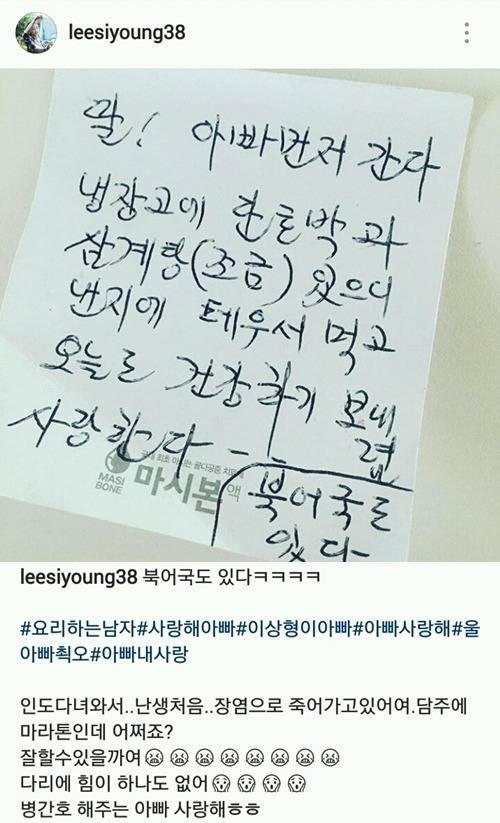 leesiyoung38
딸! 아빠먼저 간다
냉장고에 단호박과
삼계탕(조금) 있으니
렌지에 데우서 먹고
오늘도 건강하기 보내
렴
사랑한다 - -
북어국도
있다
국내 최초 마시는 골다공증 치료제
MASI
BONE
마시본 액
leesiyoung38 북어국도 있다ㅋㅋㅋㅋ
#요리하는남자#사랑해아빠#이상형이아빠#아빠사랑해#울
아빠쵝오#아빠내사랑
인도다녀와서..난생처음..장염으로 죽어가고있어여.담주에
마라톤인데 어쩌죠?
잘할수있을까여😭😭😭😭😭😭😭😭
다리에 힘이 하나도 없어😱😱😱😱
병간호 해주는 아빠 사랑해ㅎㅎ